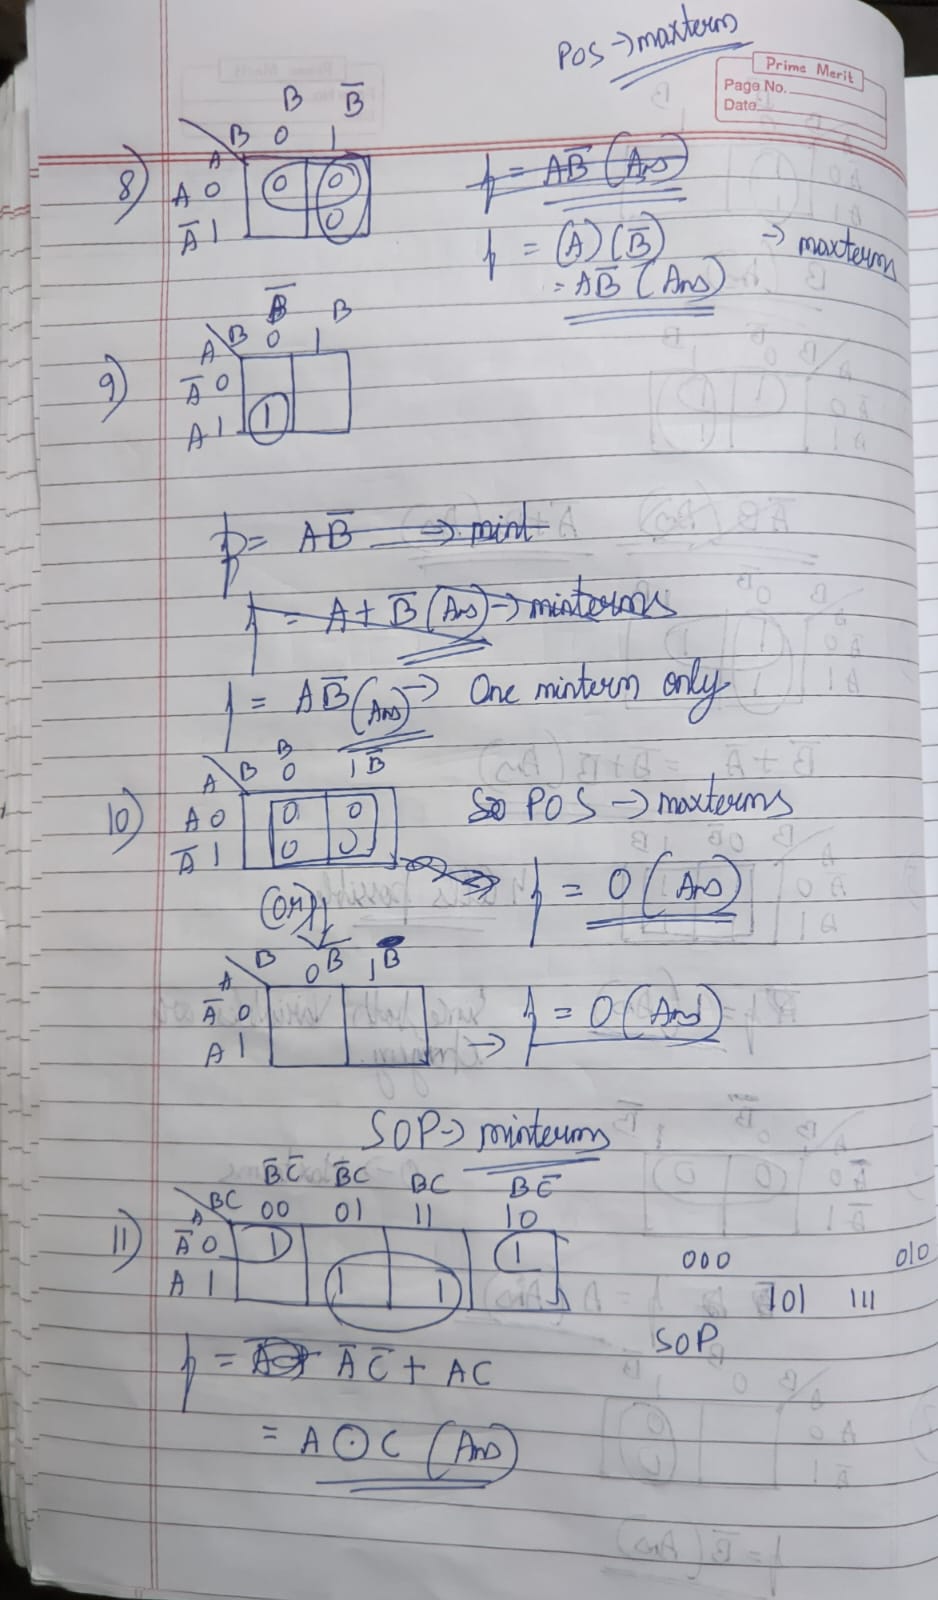 POS → maxterm
Prime Merit
Page No.
Date
B B̅
B 0 1
A
8) A 0 0 0
A̅ 1 0
f = AB̅ (Ans)
f = (A) (B̅) → maxterms
= AB̅ (Ans)
B̅ B
A B 0 1
9) A̅ 0
A 1 1
f = AB̅ → mint
f = A + B̅ (Ans) → minterms
f = AB̅ (Ans) → One minterm only.
B
A B 0 1 B̅
10) A 0 0 0
A̅ 1 0 0
POS → maxterms
f = 0 (Ans)
(or)
A B 0 B̅ 1 B
A̅ 0
A 1
→ f = 0 (Ans)
SOP → minterms
B̅C̅ B̅C BC BC̅
A BC 00 01 11 10
11) A̅ 0 1 1
A 1 1 1
000 010
101 111
SOP
f = A̅C̅ + AC
= A ⊙ C (Ans)